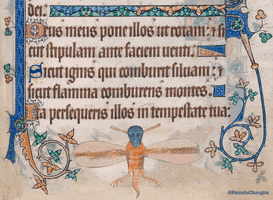 dei.
Deus meus pone illos ut rotam: ⁊ si
cut stipulam ante faciem venti.
Sicut ignis qui comburit siluam:
sicut flamma comburens montes.
Ita persequeris illos in tempestate tua: